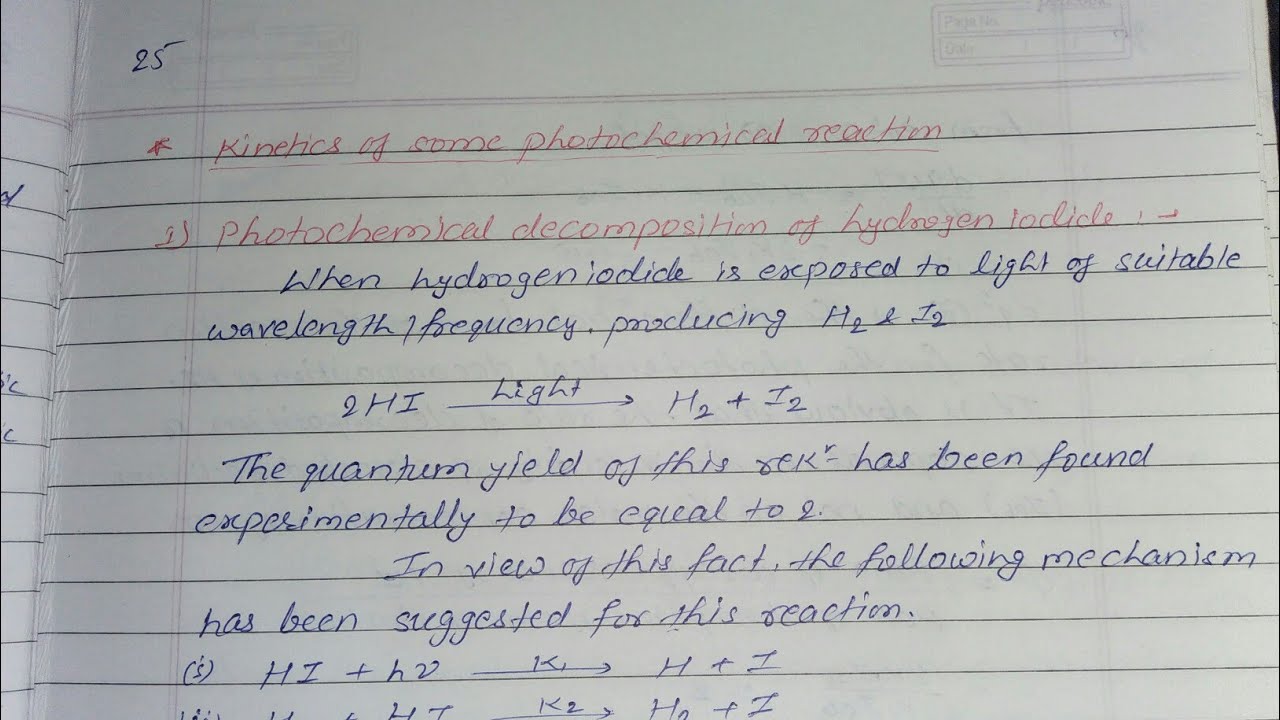 25
* Kinetics of some photochemical reaction
1) Photochemical decomposition of hydrogen iodide :-
When hydrogen iodide is exposed to light of suitable
wavelength / frequency. producing H₂ & I₂
2HI —Light→ H₂ + I₂
The quantum yield of this rexⁿ has been found
experimentally to be equal to 2.
In view of this fact, the following mechanism
has been suggested for this reaction.
(i) HI + hν —K₁→ H + I
(ii) H + HI —K₂→ H₂ + I